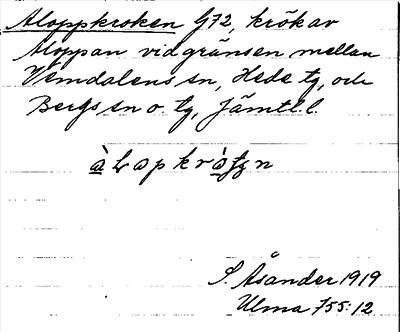 Aloppkroken G72, krökar
Aloppan vid gränsen mellan
Vemdalens sn, Hede tg, och
Bergs sn o. tg, Jämtl. l.
S. Åsander 1919
Ulma 755:12